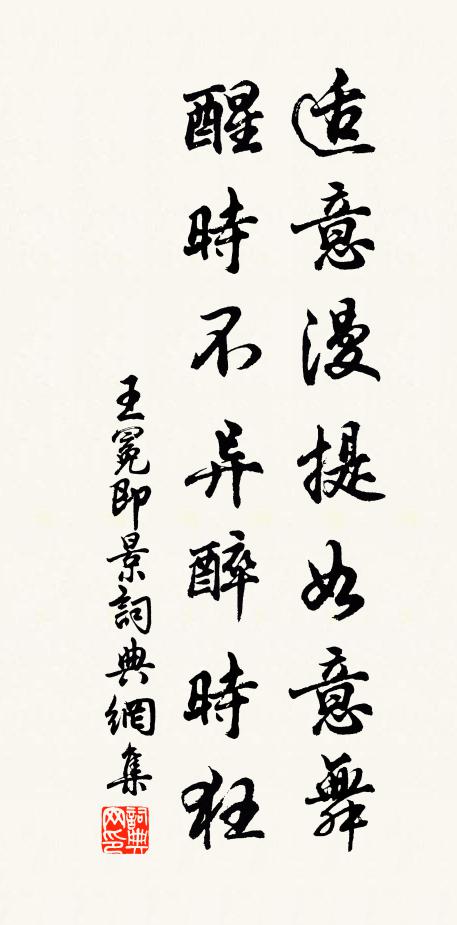 适意漫提如意舞
醒時不异醉時狂
王冕即景詞典網集
詞典網印